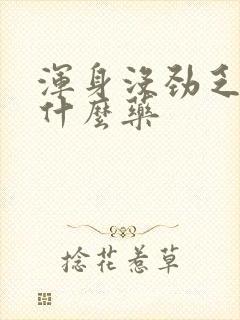 渾身沒勁乏
什麼藥
捻花惹草